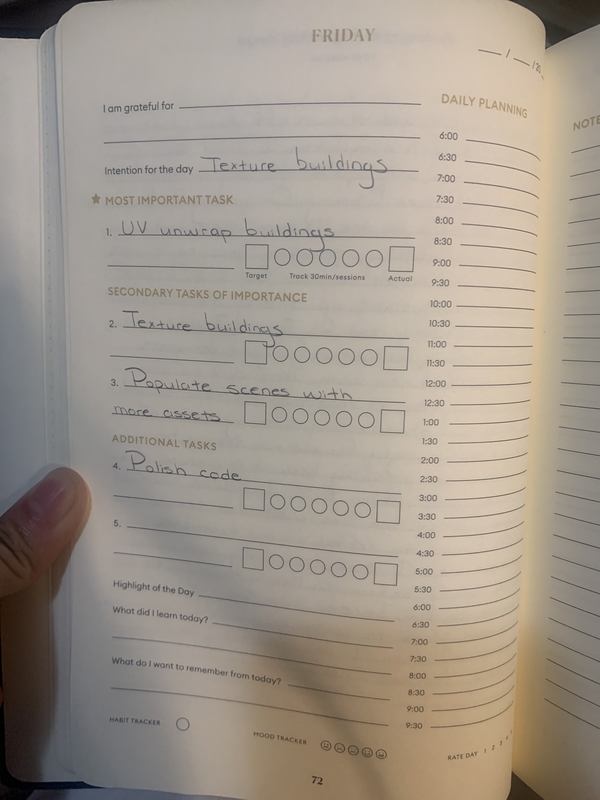 FRIDAY
___ / ___ /20
I am grateful for
Intention for the day Texture buildings
★ MOST IMPORTANT TASK
1. UV unwrap buildings
Target Track 30min/sessions Actual
SECONDARY TASKS OF IMPORTANCE
2. Texture buildings
3. Populate scenes with
more assets
ADDITIONAL TASKS
4. Polish code
5.
Highlight of the Day
What did I learn today?
What do I want to remember from today?
HABIT TRACKER
MOOD TRACKER
DAILY PLANNING
6:00
6:30
7:00
7:30
8:00
8:30
9:00
9:30
10:00
10:30
11:00
11:30
12:00
12:30
1:00
1:30
2:00
2:30
3:00
3:30
4:00
4:30
5:00
5:30
6:00
6:30
7:00
7:30
8:00
8:30
9:00
9:30
RATE DAY 1 2 3 4
72
NOTE